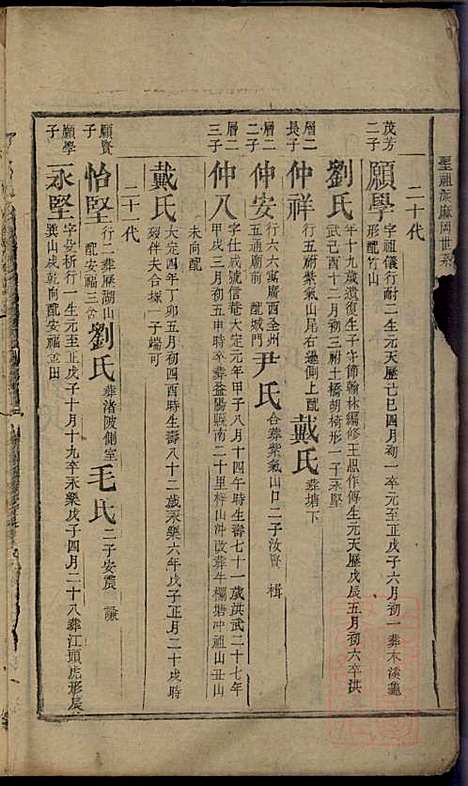 聖祖派麻岡世系
二十代
茂芳二子 願學 字祖儀行耐二生元天歷己巳四月初一卒元至正戊子六月初一葬木溪龜
形配竹山
劉氏 年十九歲遺復生子守節翰林編修王思作傳生元天歷戊辰五月初六卒洪
武己酉十二月初三附土橋胡椅形一子永堅
層二長子 仲祥 行五附紫氣山尾右邊側上配 戴氏 葬塘下
層二二子 仲安 行六六寓廣西全州 尹氏 合葬紫氣山口二子汝賢 楫
五通廟前 配城門
層二三子 仲八 字仕彧號信菴大定元年甲子八月十四午時生壽七十一歲洪武二十七年
甲戌三月初五申時卒葬益陽縣南二十里梓山沖改葬牛欄塘沖祖山丑山
未向配
戴氏 大定四年丁卯五月初四酉時生壽八十二歲永樂六年戊子正月二十戌時
歿伴夫合塚一子端可
二十一代
願賢子 怡堅 行二葬歷湖山 劉氏 葬渚陂側室 毛氏 二子安震 謙
配安福三舍
願學子 永堅 字易析行一生元至正戊子十月十九卒永樂戊子四月二十八葬江頭虎形辰
巽山戌乾向配安福金田